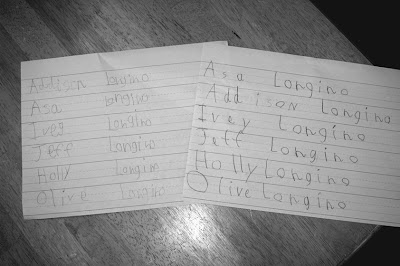 Addison Lowino
Asa Longlio
Ivey Longino
Jeff Longino
Holly Longim
Olive Longino
Asa Longino
Addison Longino
Ivey Longino
Jeff Longino
Holly Longino
Olive Longino